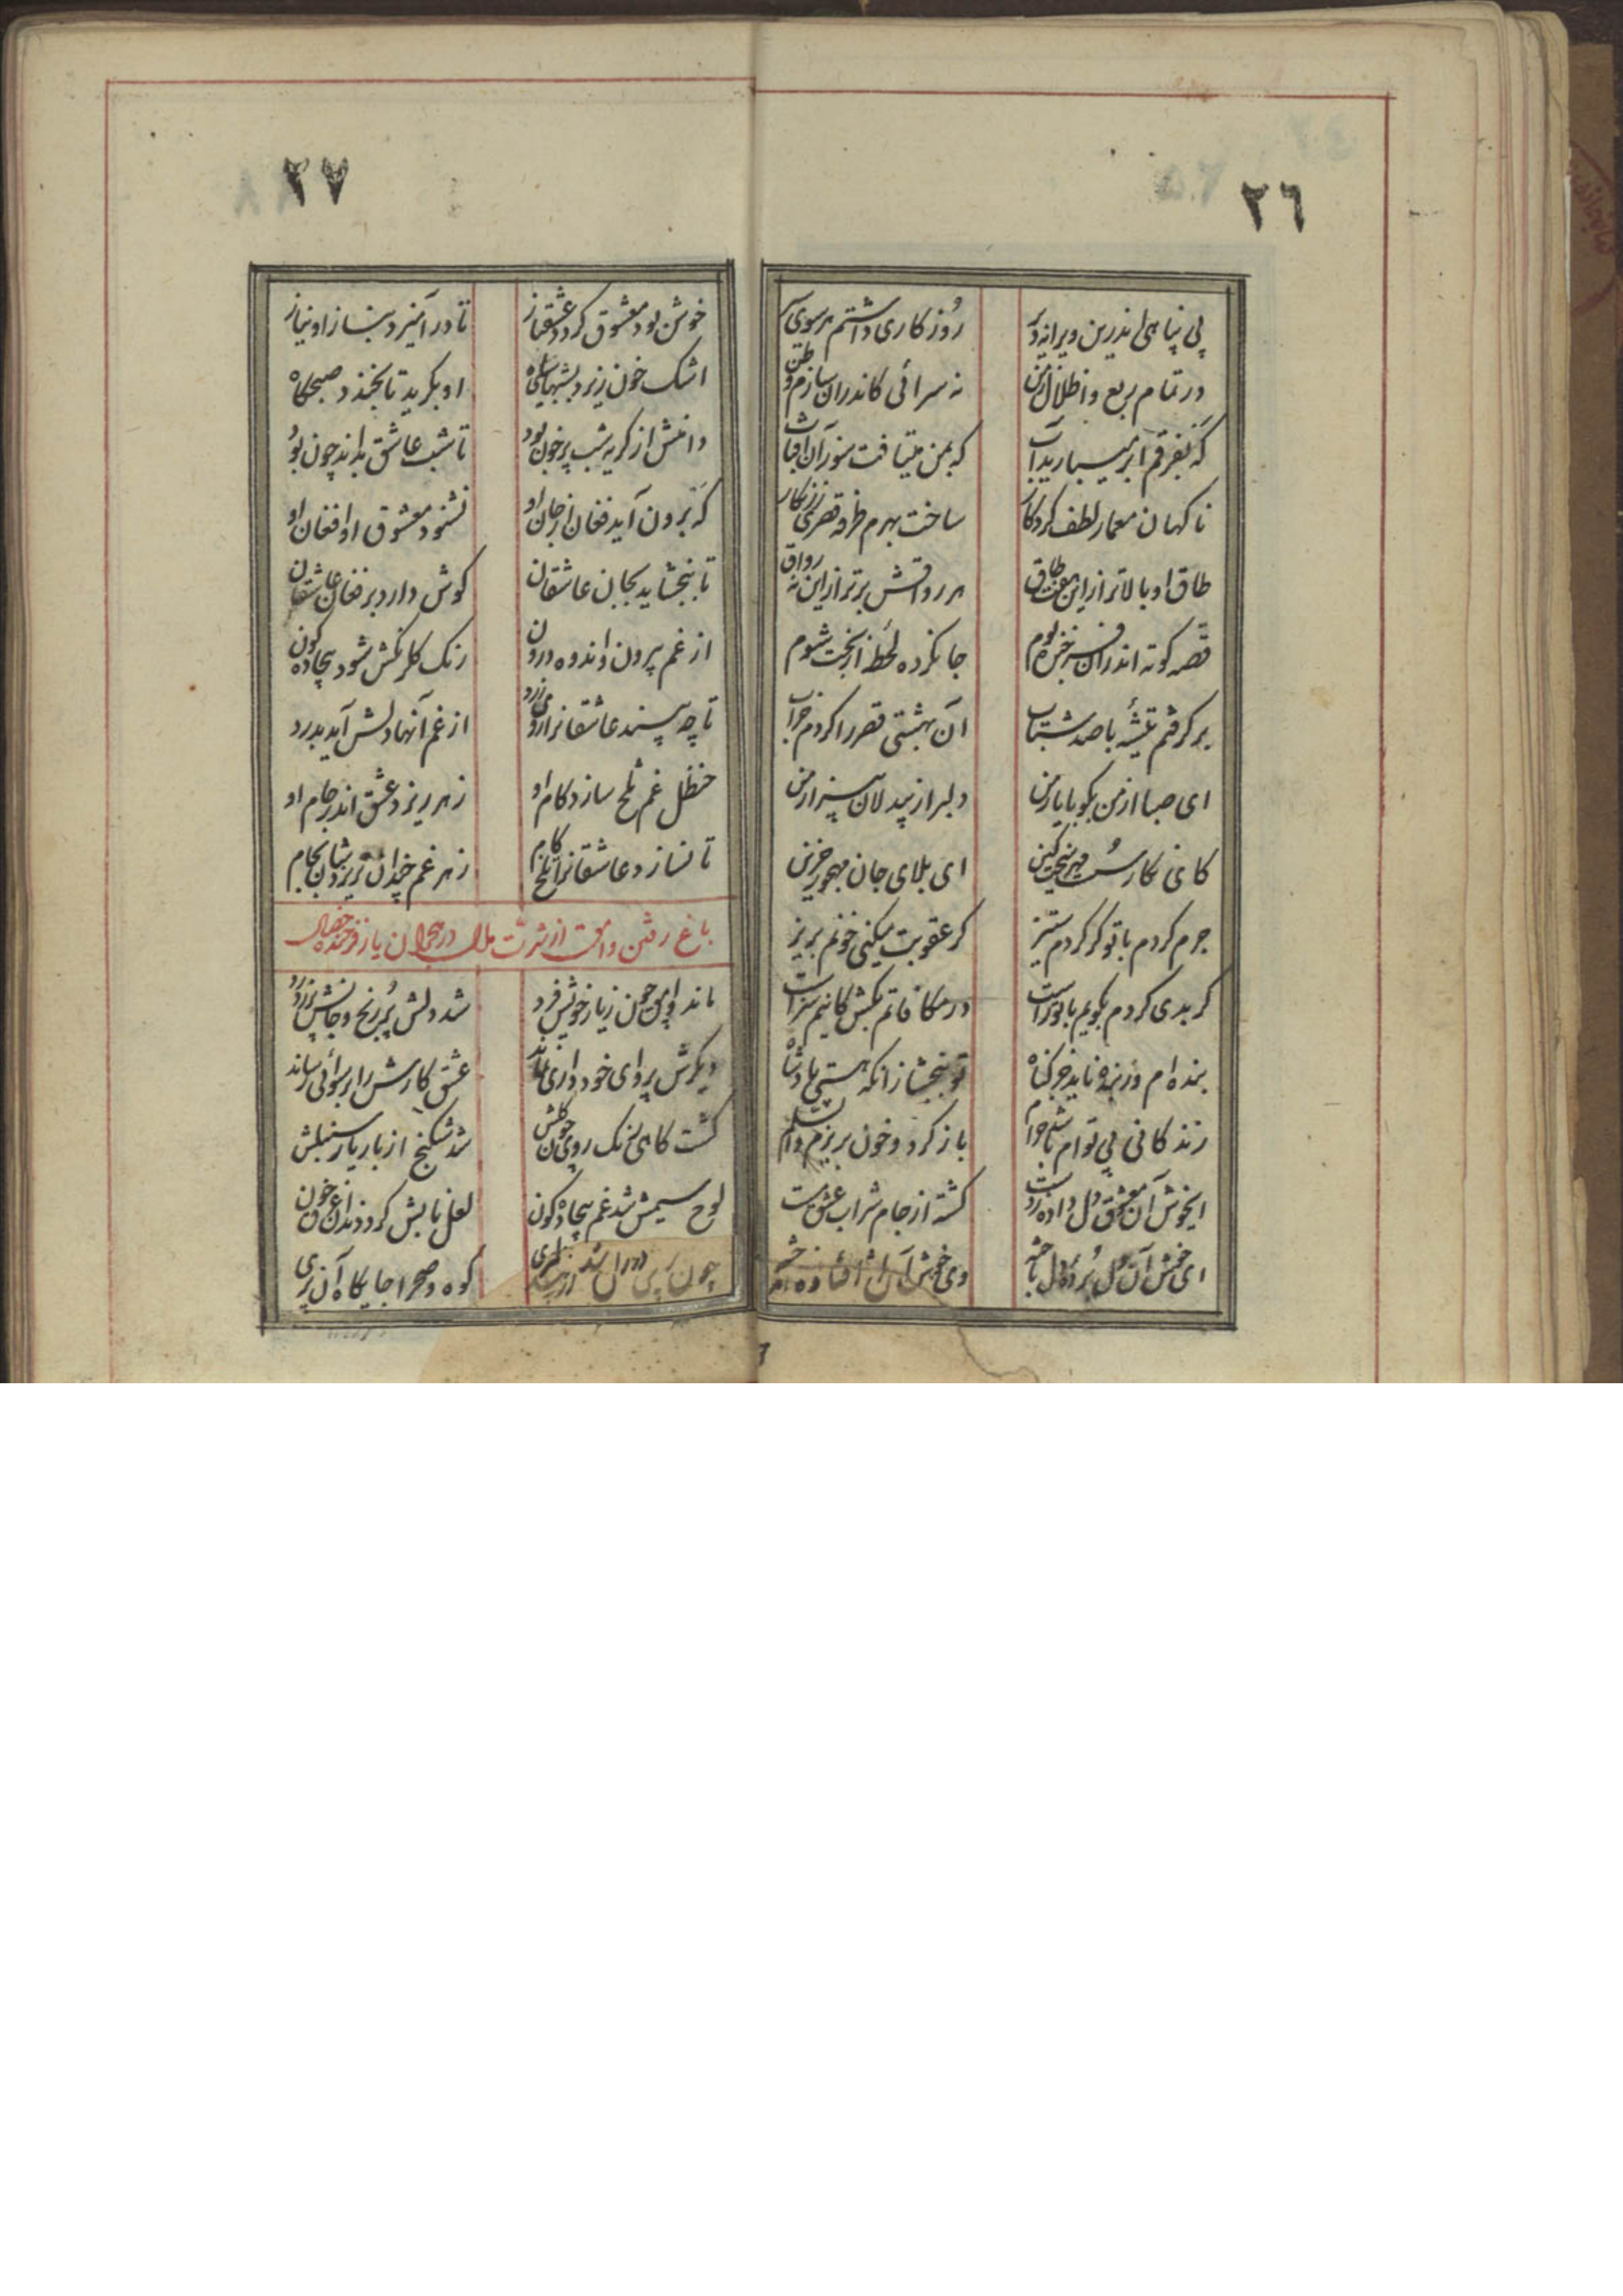 ٢٦
بی پناهی اندرین ویرانه دیر روزکاری داشتم هر سوی سیر
در تمام ربع و اطلال و دمن نه سرائی کاندران سازم وطن
که بفرقم ابر میبارید آب که بمن میتافت سوزان آفتاب
ناکهان معمار لطف کردکار ساخت بهرم طرفه قصری زرنکار
طاق او بالاتر از این هفت طاق هر رواقش برتر از این نه رواق
قصه کوته اندران فرخنده بوم جا نکرده لحظهٔ از بخت شوم
برکرفتم تیشهٔ با صد شتاب آن بهشتی قصر را کردم خراب
ای صبا از من بکو با یار من دلبر از بیدلان بیزار من
کای نکار سست مهر سخت کین ای بلای جان مهجور حزین
جرم کردم با تو کر کردم ستیز کر عقوبت میکنی خونم بریز
کر بدی کردم بکویم با تو راست در مکافاتم بکش کاینم سزاست
بنده ام وز بنده ناید جز کناه تو ببخشا زانکه هستی پادشاه
زندکانی بی توام باشد حرام بازکرد و خون بریزم والسلام
ایخوش آن معشوق دل داده ز دست کشته از جام شراب عشق مست
ای خوش آن دل بردهٔ دل باخته وی خوش آن
٢٧
خوش بود معشوق کردد عشقباز تا درآمیزد بناز او نیاز
اشک خون ریزد بشبهای سیاه او بکرید تا بخندد صبحکاه
دامنش از کریه شب پر خون بود تا شب عاشق بداند چون بود
که برون آید فغان از جان او نشنود معشوق او افغان او
تا ببخشاید بجان عاشقان کوش دارد بر فغان عاشقان
از غم بیرون و اندوه درون رنک کلرنکش شود بیجاده کون
تا چه بیند عاشقانرا روی زرد از غم آنها دلش آید بدرد
حنظل غم تلخ سازد کام او زهر ریزد عشق اندر جام او
تا نسازد عاشقانرا تلخ کام زهر غم چندان نریزدشان بجام
باغ رفتن وامق از شدت ملال در هجران یار فرخنده خصال
ماند وامق چون ز یار خویش فرد شد دلش پر رنج و جانش پر ز درد
دیکرش پروای خودداری نماند عشق کارش را برسوائی رساند
کشت کاهی رنک روی چون کلش شد شکنج از بار یار سنبلش
لوح سیمش شد ز غم بیجاده کون لعل نابش کرد دندان غرق خون
چون پری کوه و صحرا جایکاه آن پری